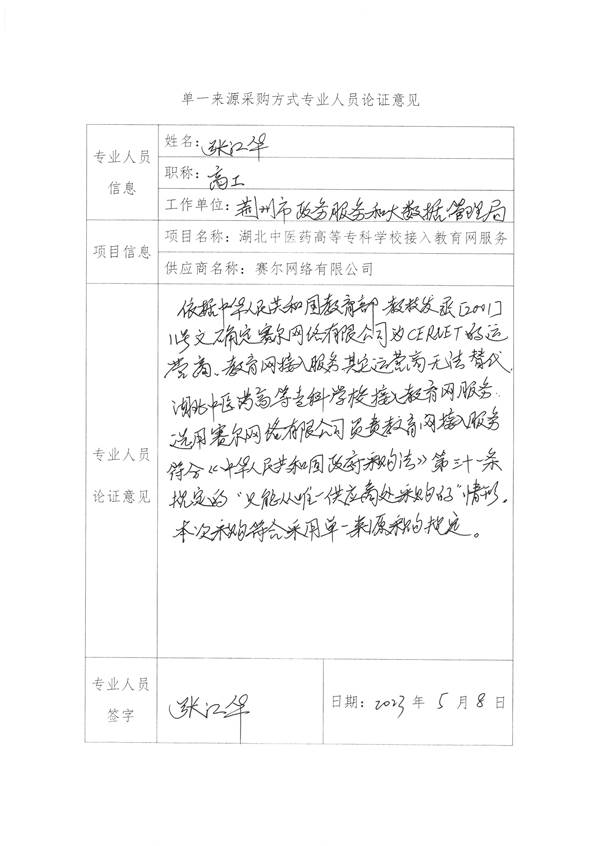 单一来源采购方式专业人员论证意见
专业人员
信息
姓名：张江华
职称：高工
工作单位：荆州市政务服务和大数据管理局
项目信息
项目名称：湖北中医药高等专科学校接入教育网服务
供应商名称：赛尔网络有限公司
专业人员
论证意见
依据中华人民共和国教育部 教技发函[2001]
1号文确定赛尔网络有限公司为CERNET的运
营商、教育网接入服务其它运营商无法替代.
湖北中医药高等专科学校接入教育网服务.
选用赛尔网络有限公司负责教育网接入服务
符合《中华人民共和国政府采购法》第三十一条
规定的"只能从唯一供应商处采购的"情形。
本次采购符合采用单一来源采购的规定。
专业人员
签字
张江华
日期：2023 年 5 月 8 日